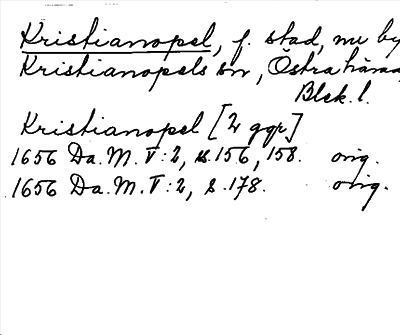 Kristianopel, f. stad, nu by
Kristianopels sn, Östra härad,
Blek. l.
Kristianopel [2 ggr]
1656 Da. M. V:2, s. 156, 158. orig.
1656 Da. M. V:2, s. 178. orig.